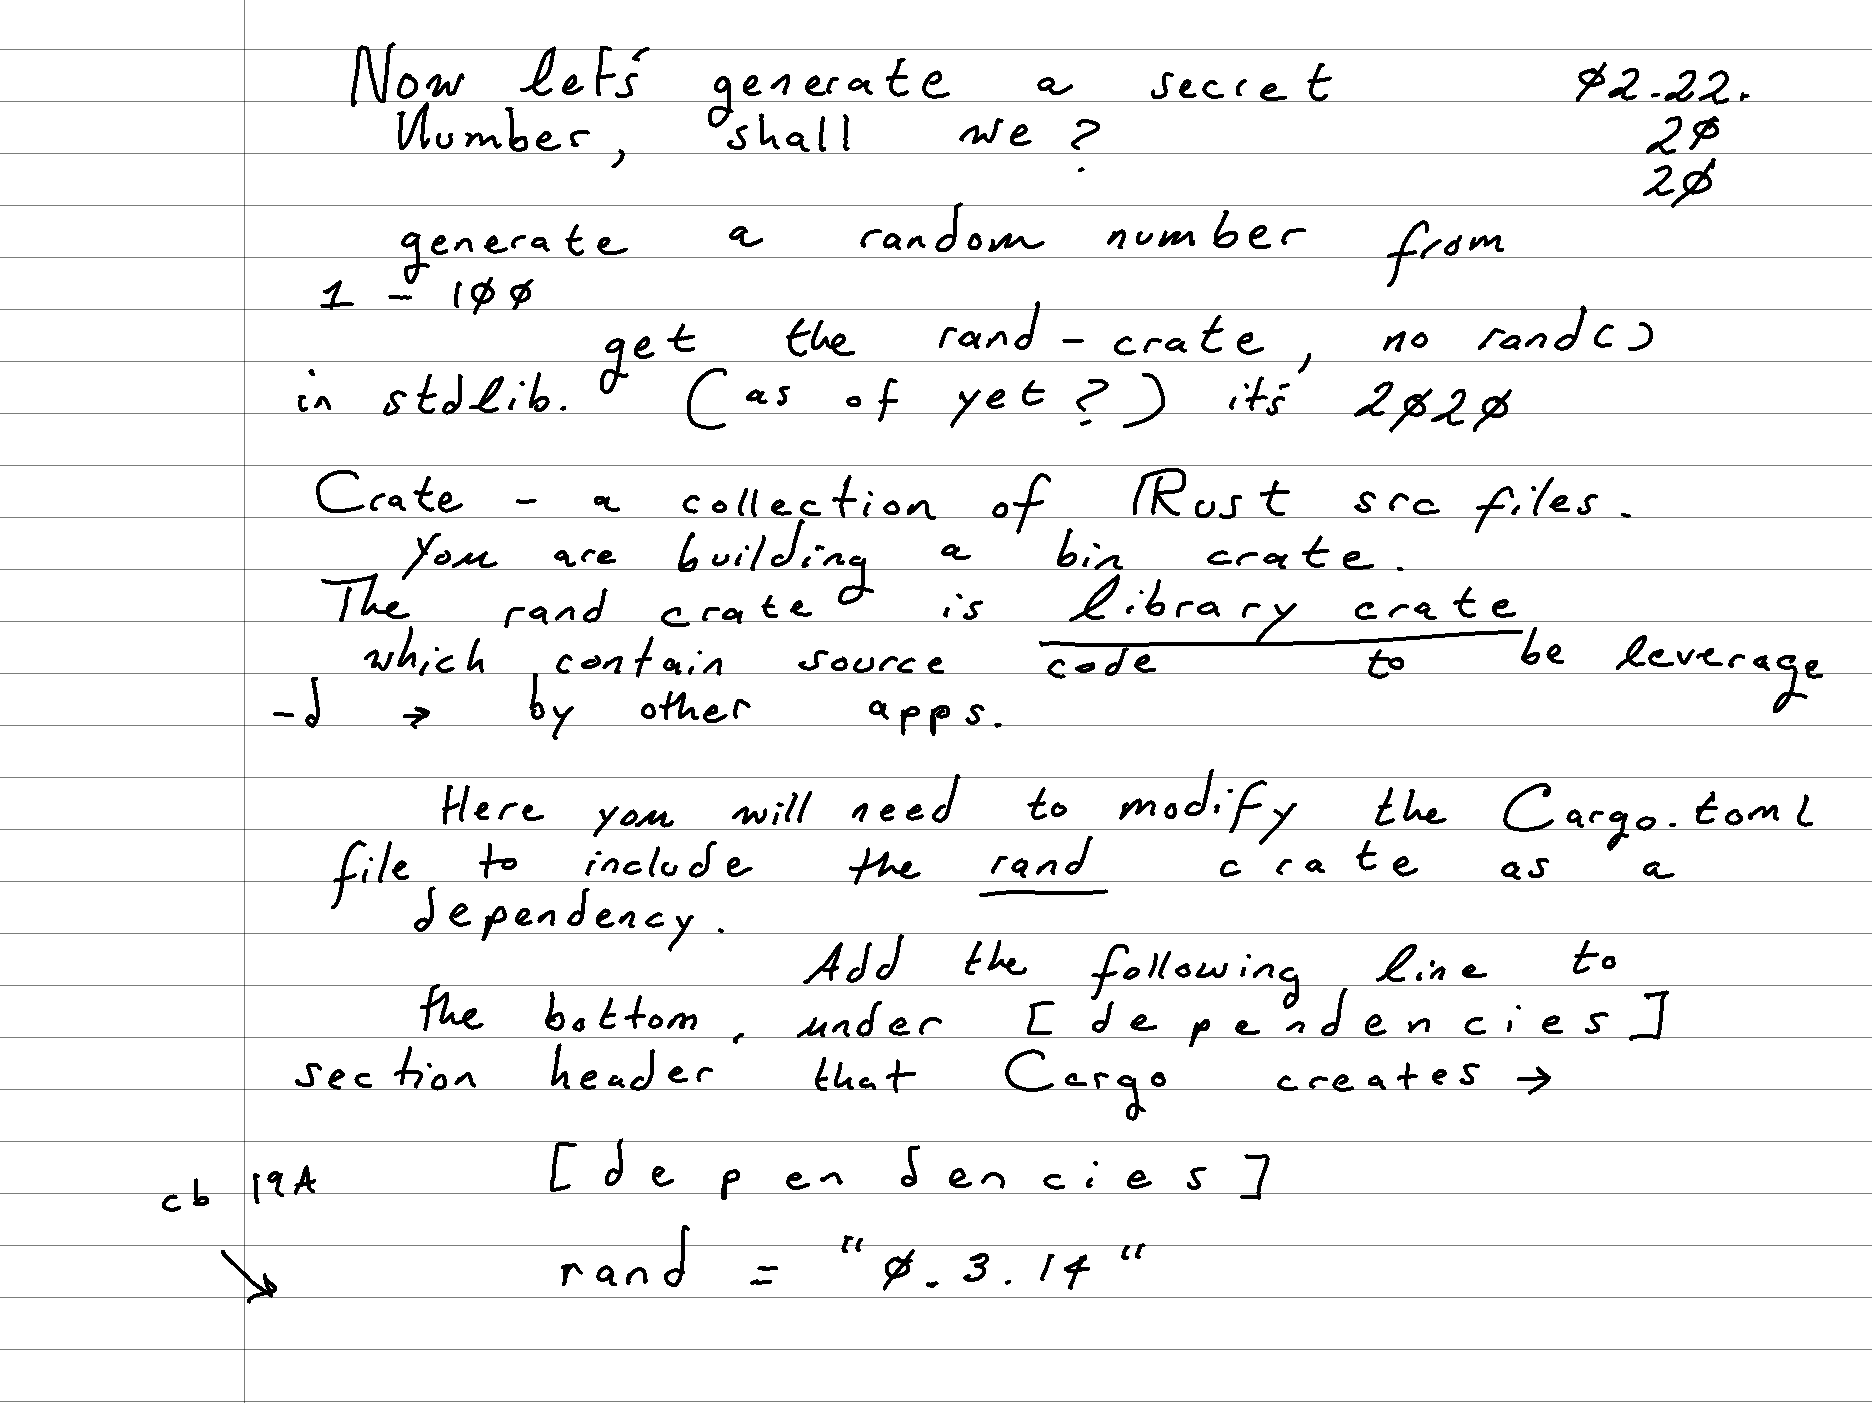 Now let's generate a secret ø2.22.
Number, shall we? 2ø
2ø
generate a random number from
1 - 1øø
get the rand-crate, no rand()
in stdlib. (as of yet?) it's 2ø2ø
Crate - a collection of Rust src files.
You are building a bin crate.
The rand crate is library crate
which contain source code to be leverage
-d → by other apps.
Here you will need to modify the Cargo.toml
file to include the rand crate as a
dependency.
Add the following line to
the bottom, under [dependencies]
section header that Cargo creates →
cb 19A [dependencies]
rand = "ø.3.14"